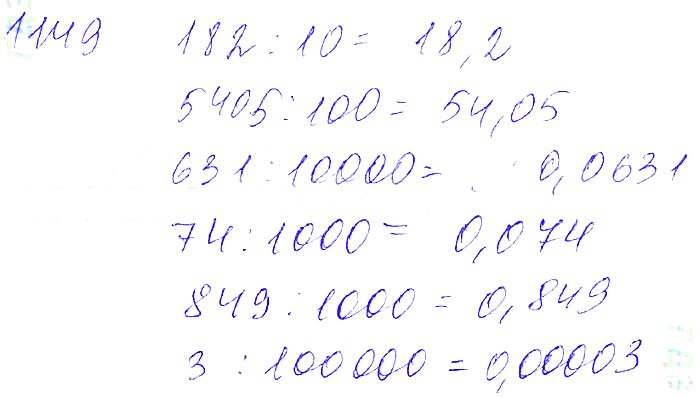 1149 182 : 10 = 18,2
5405 : 100 = 54,05
631 : 10000 = 0,0631
74 : 1000 = 0,074
849 : 1000 = 0,849
3 : 100000 = 0,00003